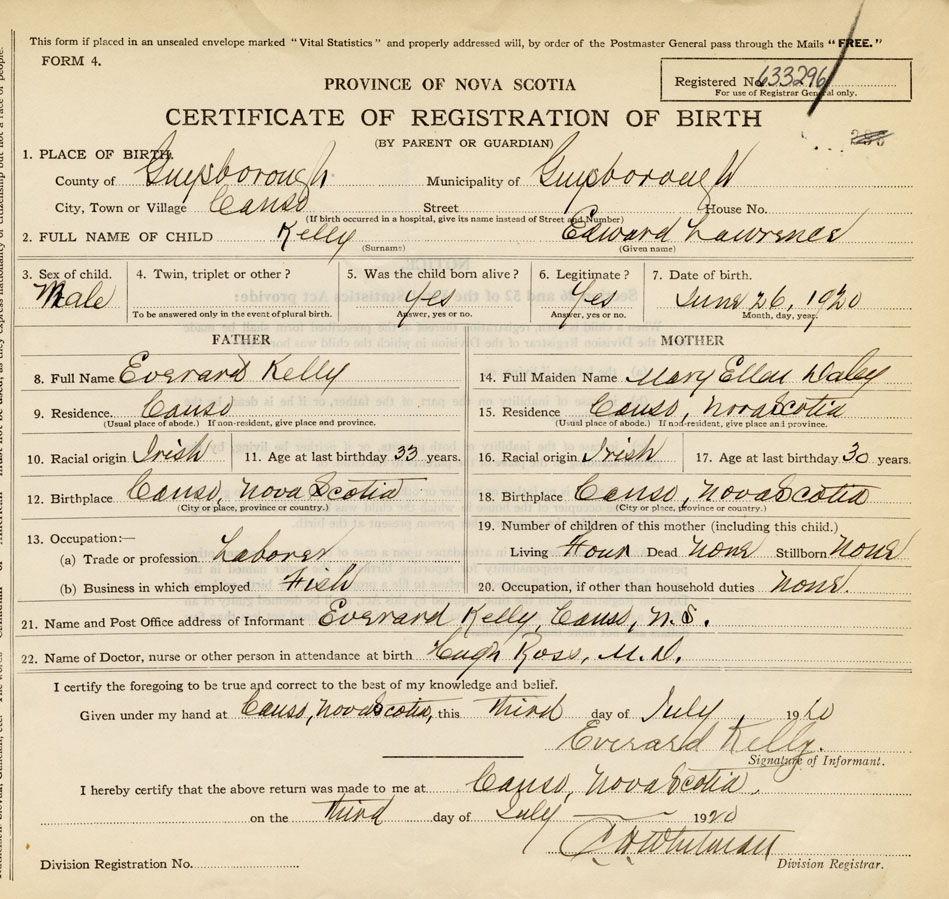 This form if placed in an unsealed envelope marked "Vital Statistics" and properly addressed will, by order of the Postmaster General pass through the Mails "FREE."
FORM 4.
Registered No. 633296
For use of Registrar General only.
PROVINCE OF NOVA SCOTIA
CERTIFICATE OF REGISTRATION OF BIRTH
(BY PARENT OR GUARDIAN)
1. PLACE OF BIRTH.
County of Guysborough Municipality of Guysborough
City, Town or Village Canso Street House No.
(If birth occurred in a hospital, give its name instead of Street and Number)
2. FULL NAME OF CHILD Kelly Edward Lawrence
(Surname) (Given name)
3. Sex of child. 4. Twin, triplet or other? 5. Was the child born alive? 6. Legitimate? 7. Date of birth.
Male Yes Yes June 26, 1920
To be answered only in the event of plural birth. Answer, yes or no. Answer, yes or no. Month, day, year.
FATHER MOTHER
8. Full Name Everard Kelly 14. Full Maiden Name Mary Ellen Daley
9. Residence. Canso 15. Residence Canso, Nova Scotia
(Usual place of abode.) If non-resident, give place and province. (Usual place of abode.) If non-resident, give place and province.
10. Racial origin Irish 11. Age at last birthday 33 years. 16. Racial origin Irish 17. Age at last birthday 30 years.
12. Birthplace Canso, Nova Scotia 18. Birthplace Canso, Nova Scotia
(City or place, province or country.) (City or place, province or country.)
13. Occupation:— 19. Number of children of this mother (including this child.)
(a) Trade or profession Laborer Living Four Dead None Stillborn None
(b) Business in which employed Fish 20. Occupation, if other than household duties None.
21. Name and Post Office address of Informant Everard Kelly, Canso, N.S.
22. Name of Doctor, nurse or other person in attendance at birth Hugh Ross, M.D.
I certify the foregoing to be true and correct to the best of my knowledge and belief.
Given under my hand at Canso, Nova Scotia, this third day of July, 1920
Everard Kelly.
Signature of Informant.
I hereby certify that the above return was made to me at Canso, Nova Scotia.
on the third day of July 1920
C H Whitman
Division Registration No. Division Registrar.